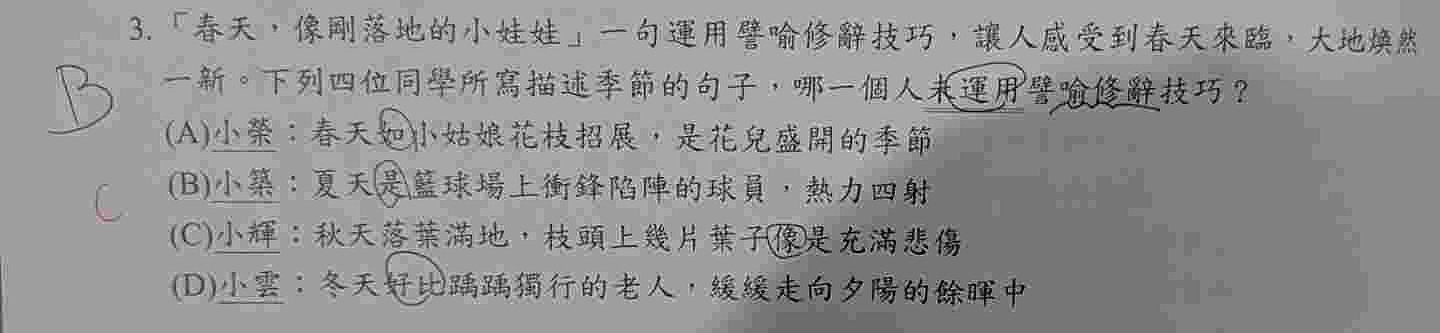 3.「春天，像剛落地的小娃娃」一句運用譬喻修辭技巧，讓人感受到春天來臨，大地煥然
B 一新。下列四位同學所寫描述季節的句子，哪一個人未運用譬喻修辭技巧？
(A)小榮：春天如小姑娘花枝招展，是花兒盛開的季節
(B)小築：夏天是籃球場上衝鋒陷陣的球員，熱力四射
C
(C)小輝：秋天落葉滿地，枝頭上幾片葉子像是充滿悲傷
(D)小雲：冬天好比踽踽獨行的老人，緩緩走向夕陽的餘暉中